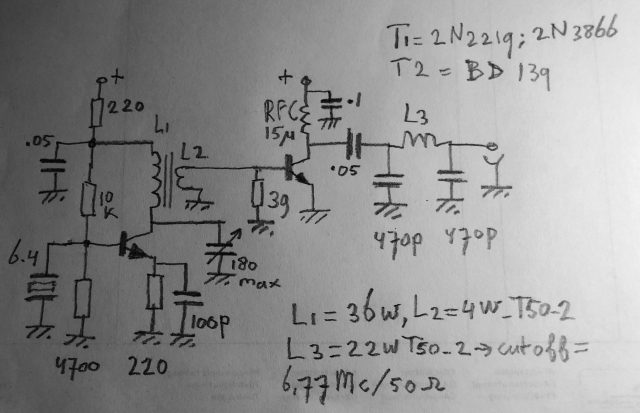 T1=2N2219; 2N3866
T2 = BD 139
+
220
.05
L1
L2
+
RFC
15μ
.1
L3
.05
10
K
39
470p
470p
6.4
180
max
100p
4700
220
L1=36w, L2=4w_T50-2
L3=22wT50-2→cutoff=
6,77Mc/50Ω